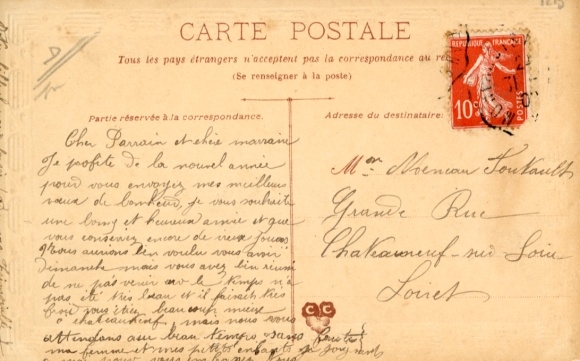 CARTE POSTALE
Tous les pays étrangers n'acceptent pas la correspondance au
(Se renseigner à la poste)
REPUBLIQUE FRANÇAISE
10c
Partie réservée à la correspondance.
Adresse du destinataire
Cher Parrain et chère marraine
Je profite de la nouvel année
pour vous envoyez mes meilleurs
vœux de bonheur, je vous souhaite
une bonne et heureux année et que
vous conserviez encore de vieux jours
Nous aurions bien voulu vous avoir
dimanche mais vous avez bien réussi
de ne pas venir car le temps n'a
pas été très beau et il faisait très
froid vous étiez beaucoup mieux
a chateauneuf, mais nous vous
attendons au beau temps sans faute
ma femme et mes petits enfants se joignent
Mr Foucault
Grande Rue
Chateauneuf-sur Loire
Loiret
CC